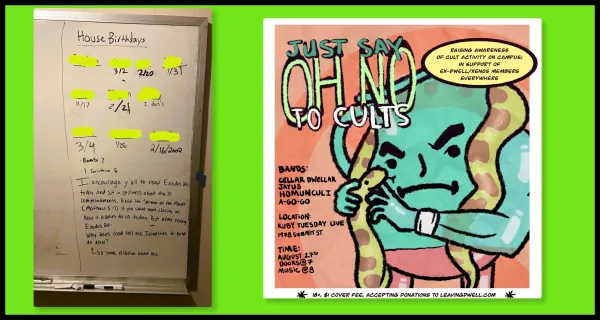 House Birthdays
3/2
2/20
1/31
11/17
2/21
3/4
1/30
2/16/2002
Exodus ?
I encourage y'all to read Exodus 20
today and sit in stillness about the 10
commandments. Read the Sermon on the Mount
(Matthew 5-7) if you want more clarity on
how it applies to us today. But after reading
Exodus 20
Why does God tell the Israelites to build
an altar?
JUST SAY
OH NO
TO CULTS
RAISING AWARENESS
OF CULT ACTIVITY ON CAMPUS;
IN SUPPORT OF
EX-DWELL/XENOS MEMBERS
EVERYWHERE
BANDS:
CELLAR DWELLAR
JAYUS
HOMUNCULI
A-GO-GO
LOCATION:
RUBY TUESDAY LIVE
1978 SUMMIT ST.
TIME:
AUGUST 27TH
DOORS@7
MUSIC@8
18+, $1 COVER FEE, ACCEPTING DONATIONS TO LEAVINGDWELL.COM